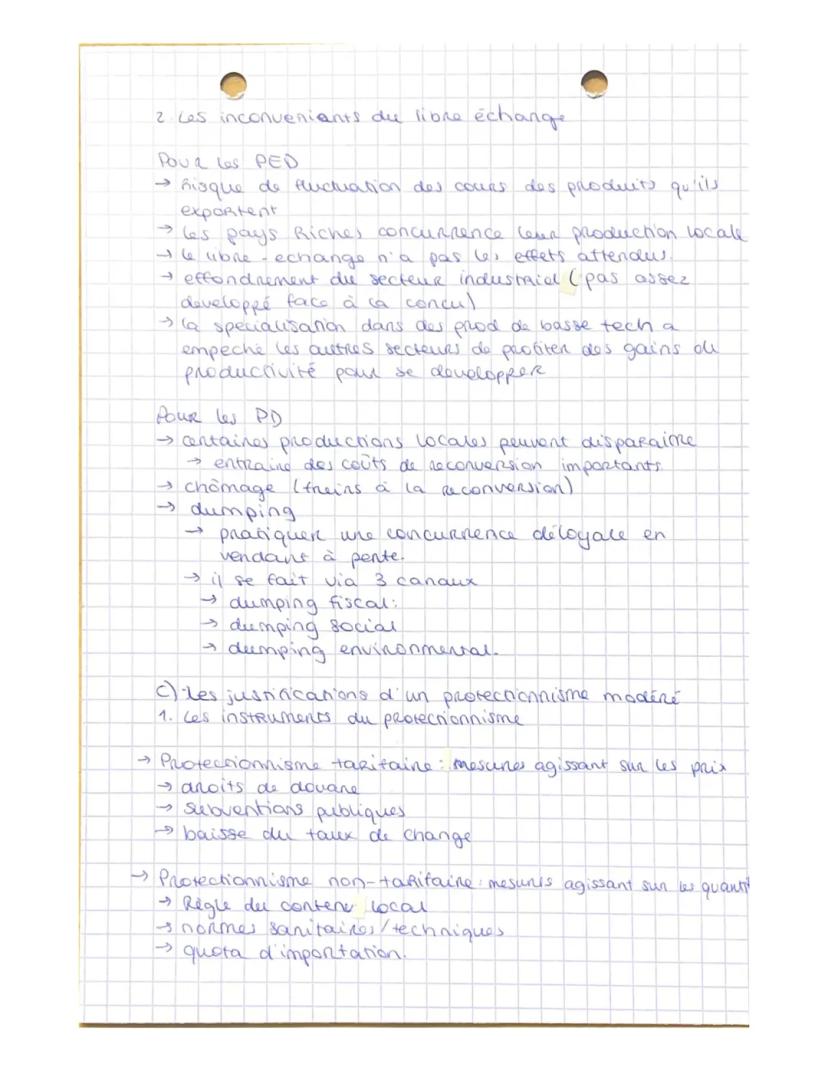 2. Les inconvenients du libre échange
Pour les PED
→ Risque de fluctuation des cours des produits qu'ils
exportent
→ les pays Riches concurrence leur production locale
→ le libre-echange n'a pas les effets attendus.
→ effondrement du secteur industriel (pas assez
developpé face à la concu)
→ la specialisation dans des prod de basse tech a
empeché les autres secteurs de profiter des gains de
productivité pour se developper
Pour les PD
→ certaines productions locales peuvent disparaitre
→ entraine des coûts de reconversion importants
→ chômage (freins à la reconversion)
→ dumping
→ pratiquer une concurrence déloyale en
vendant à perte.
→ il se fait via 3 canaux
→ dumping fiscal:
→ dumping social
→ dumping environmental.
C) Les justifications d'un protectionnisme modéré
1. Les instruments du protectionnisme
→ Protectionnisme tarifaire: mesures agissant sur les prix
→ droits de douane
→ subventions publiques
→ baisse du taux de change
→ Protectionnisme non-tarifaire: mesures agissant sur les quanti
→ Règle du contenu local
→ normes sanitaires/techniques
→ quota d'importation.